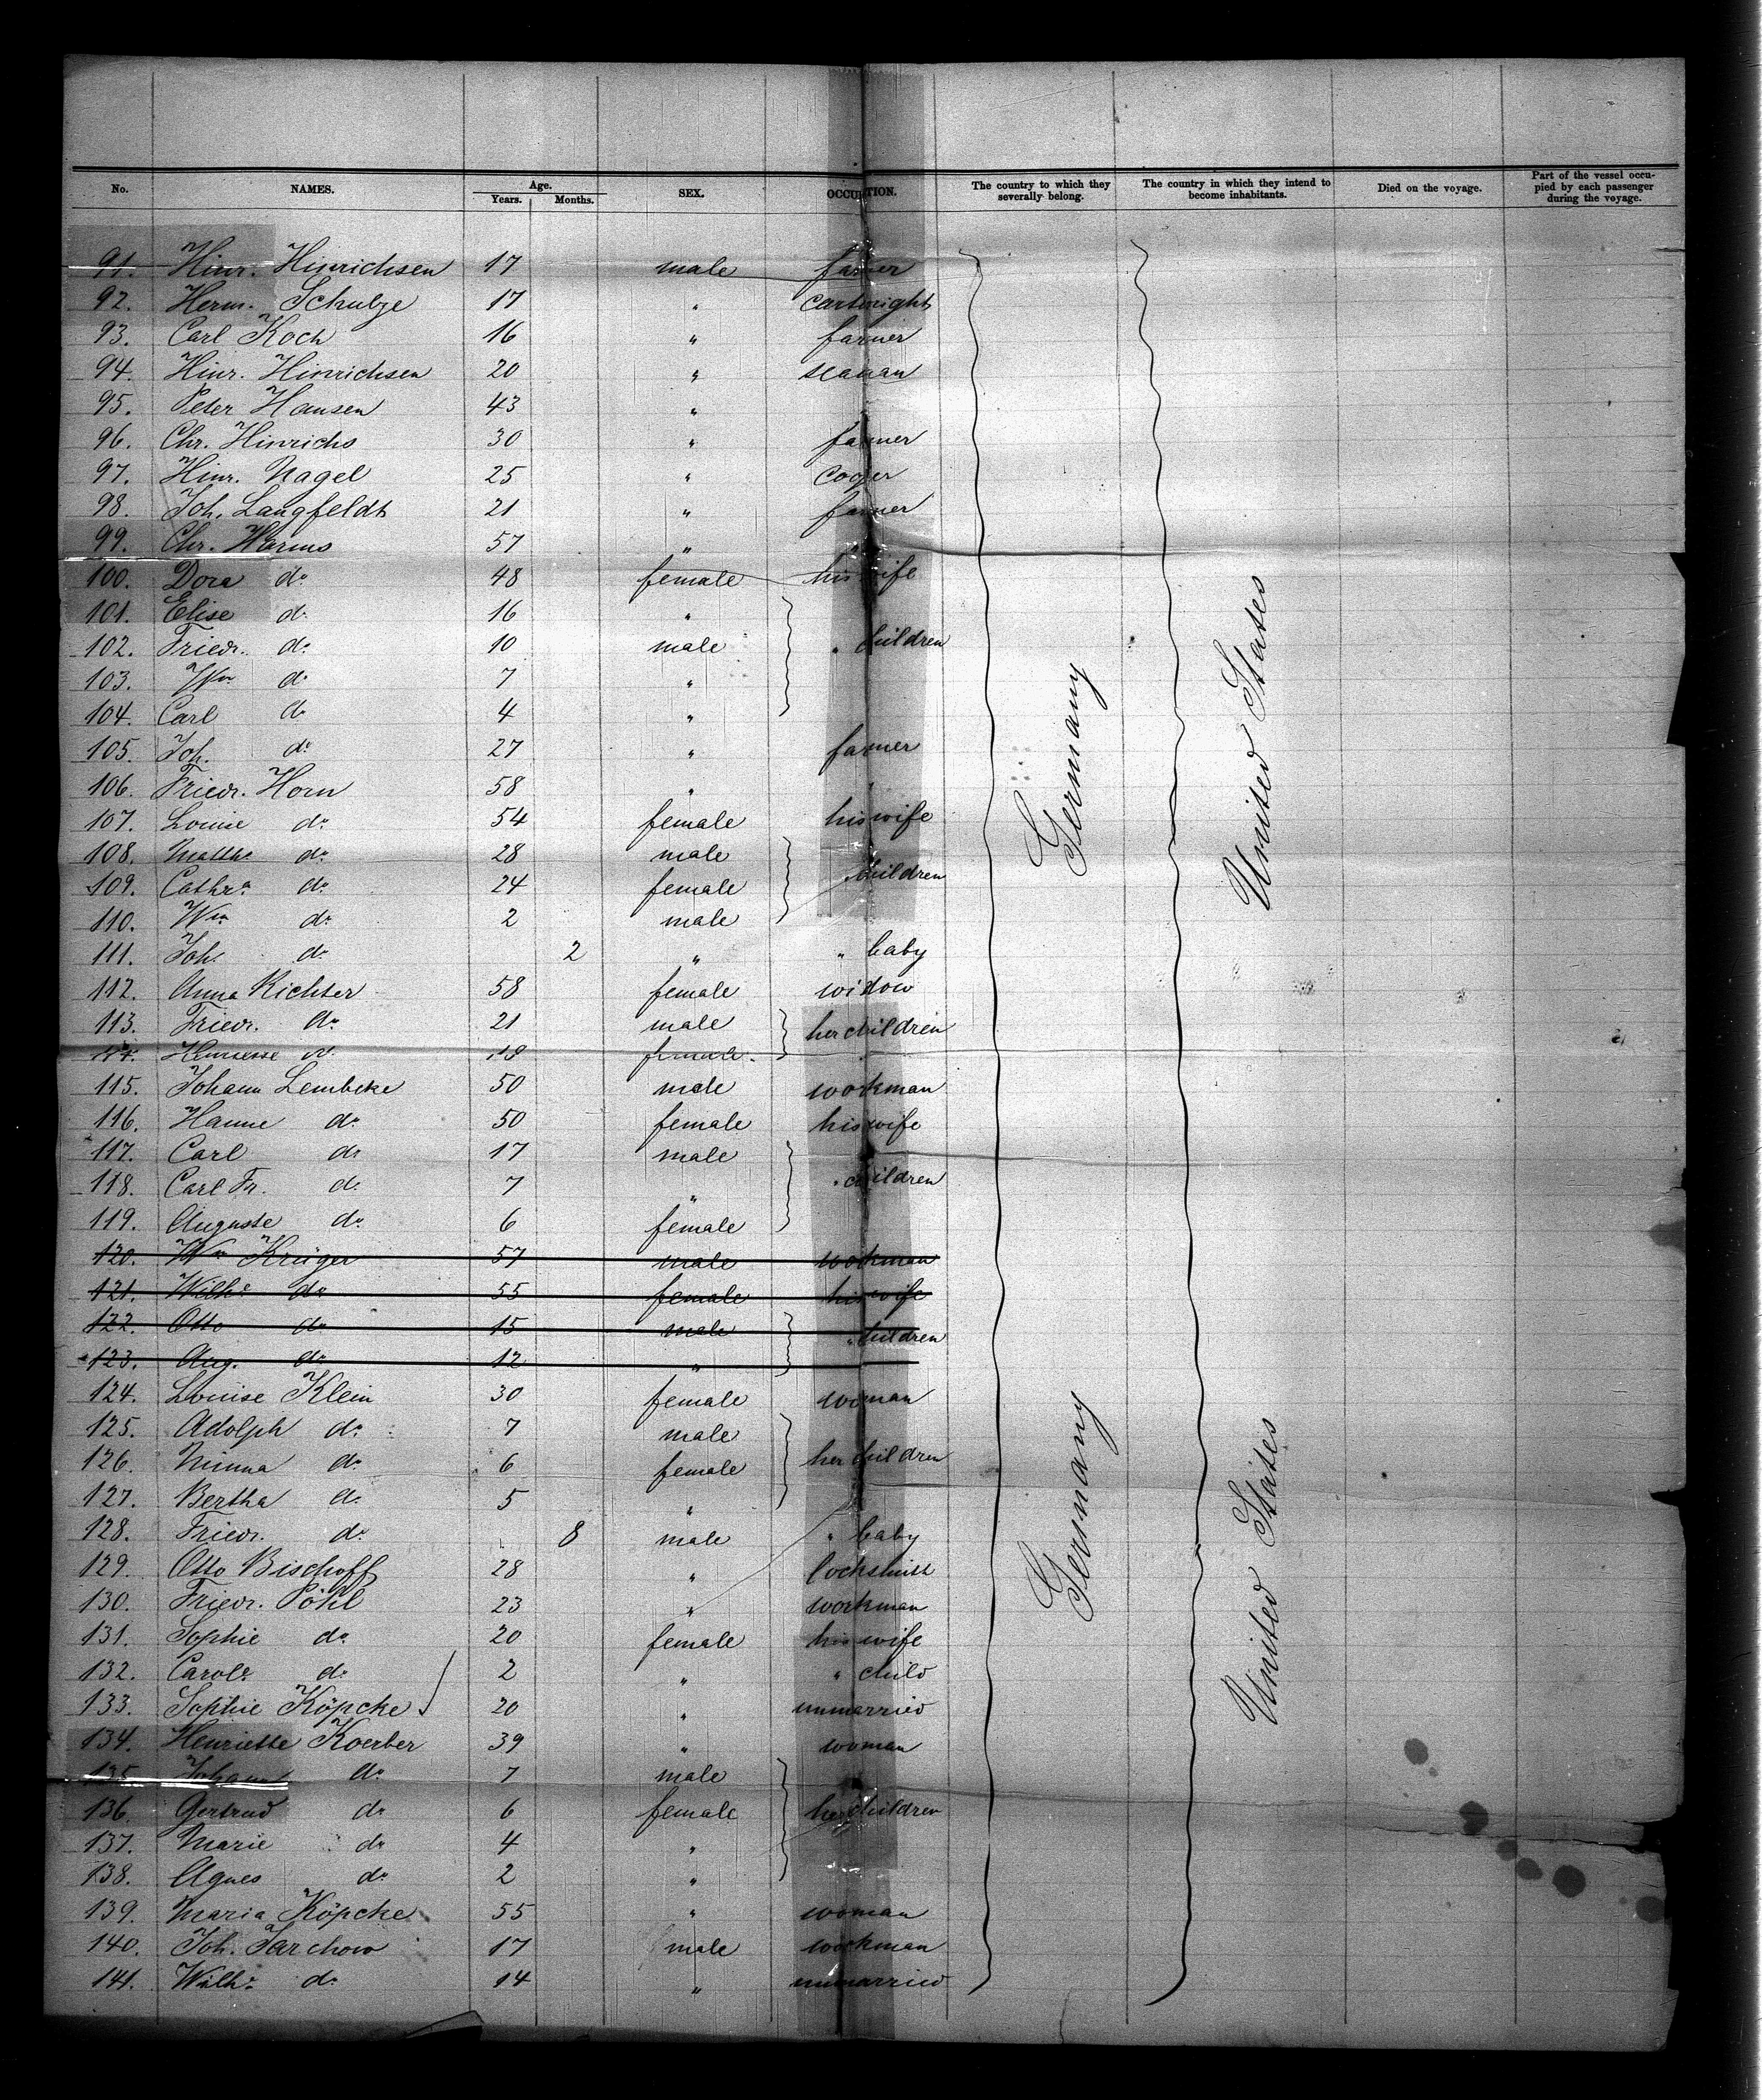 No. NAMES. Age. Years. Months. SEX. OCCUPATION. The country to which they severally belong. The country in which they intend to become inhabitants. Died on the voyage. Part of the vessel occupied by each passenger during the voyage.
91. Hinr. Hinrichsen 17 male farmer
92. Herm. Schulze 17 " cartwright
93. Carl Koch 16 " farmer
94. Hinr. Hinrichsen 20 " seaman
95. Peter Hansen 43 "
96. Chr. Hinrichs 30 " farmer
97. Hinr. Nagel 25 " cooper
98. Joh. Langfeldt 21 " farmer
99. Chr. Harms 57 " "
100. Dora do 48 female his wife
101. Elise do 16 "
102. Friedr. do 10 male " children
103. Wm do 7 "
104. Carl do 4 "
105. Joh. do 27 " farmer
106. Friedr. Horn 58 " "
107. Louise do 54 female his wife
108. Matths do 28 male
109. Cathra do 24 female " children
110. Wm do 2 male
111. Joh. do 2 " " baby
112. Anna Richter 58 female widow
113. Friedr. do 21 male her children
114. do female
115. Johann Lembcke 50 male workman
116. Hanne do 50 female his wife
117. Carl do 17 male
118. Carl Fr. do 7 " " children
119. Auguste do 6 female
120. Wm Krüger 57 male workman
121. Wilhe do 55 female his wife
122. Otto do 15 male " children
123. Aug. do 12 "
124. Louise Klein 30 female woman
125. Adolph do 7 male
126. Minna do 6 female her children
127. Bertha do 5 "
128. Friedr. do 8 male " baby
129. Otto Bischoff 28 " locksmith
130. Friedr. Pöhl 23 " workman
131. Sophie do 20 female his wife
132. Carole do 2 " " child
133. Sophie Köpcke 20 " unmarried
134. Henriette Koerber 39 " woman
135. Johann do 7 male
136. Gertrud do 6 female her children
137. Marie do 4 "
138. Agnes do 2 "
139. Maria Köpcke 55 " woman
140. Joh. Jarchow 17 male workman
141. Wilh. do 14 " unmarried
Germany
United States
Germany
United States